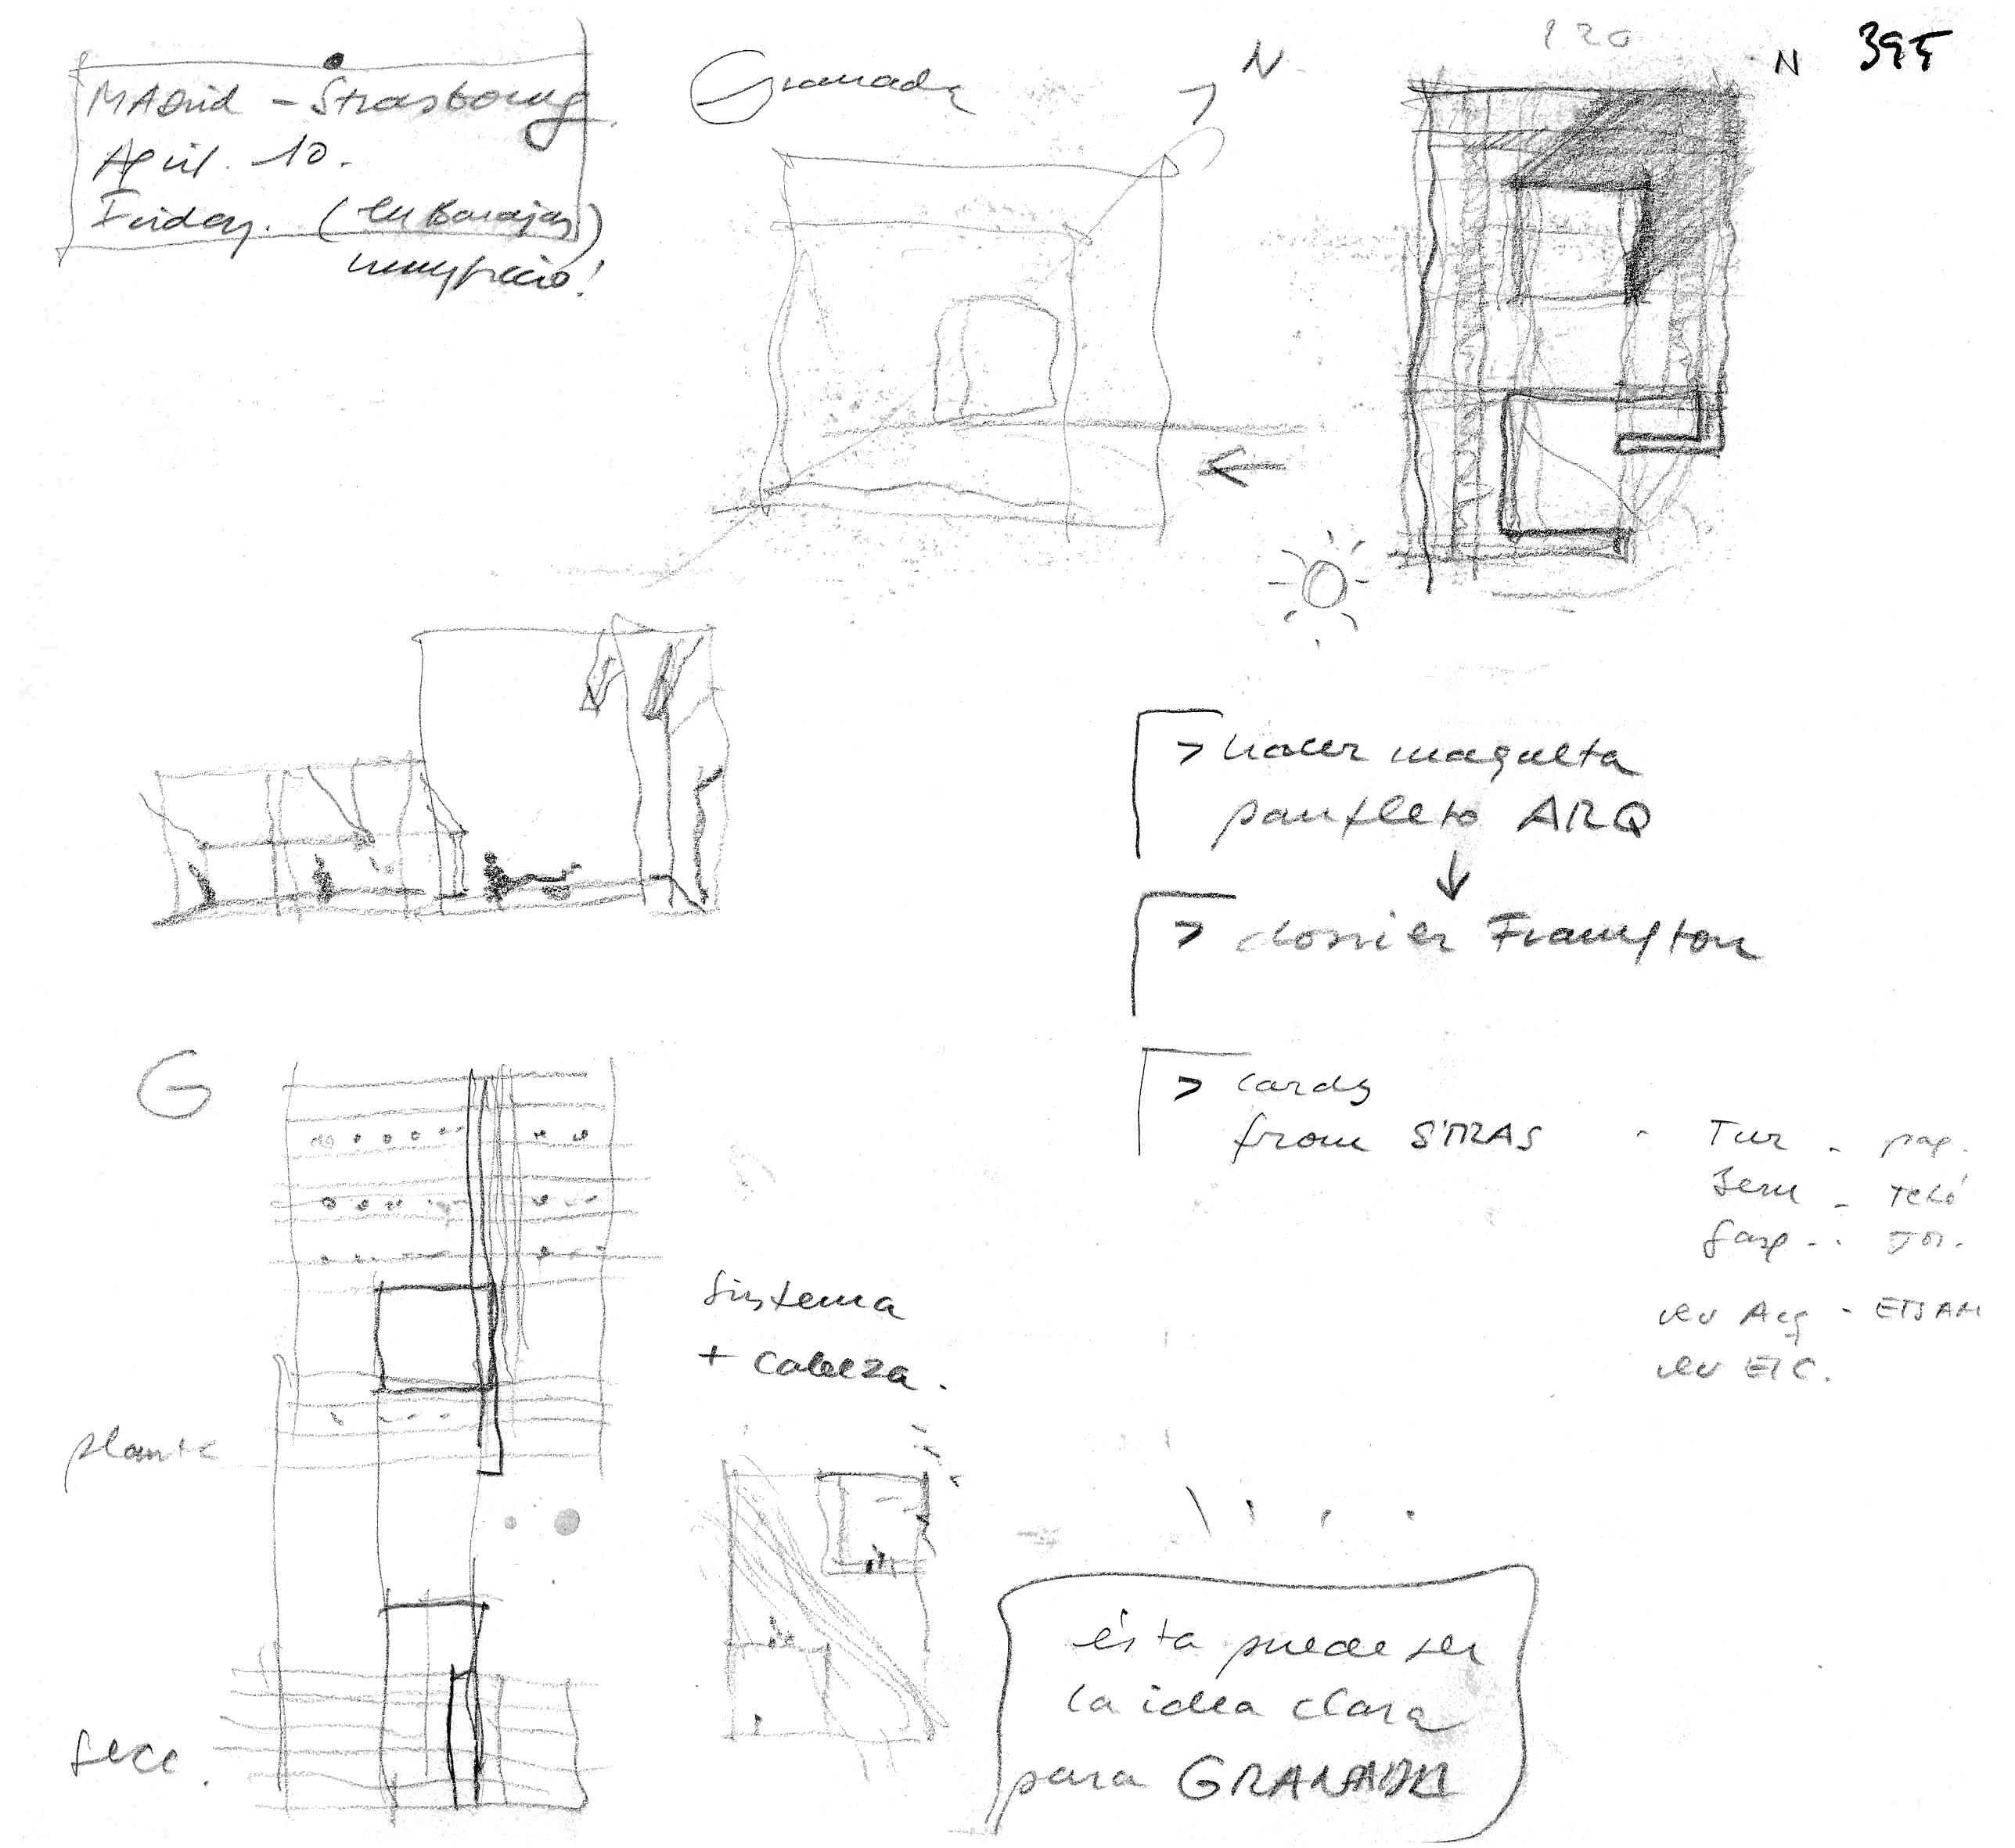 Madrid - Strasbourg
April. 10.
Friday. (en Barajas)
muy frecio!
Granada
N
120
N 395
> hacer maqueta
panfleto ARQ
> dossier Frampton
> cards
from STRAS - Tur - pap.
Jeru - Teló
Gasp -
rev Arq - ETSAM
rev EIC.
G
sistema
+ cabeza.
planta
secc.
ésta puede ser
la idea clara
para GRANADA